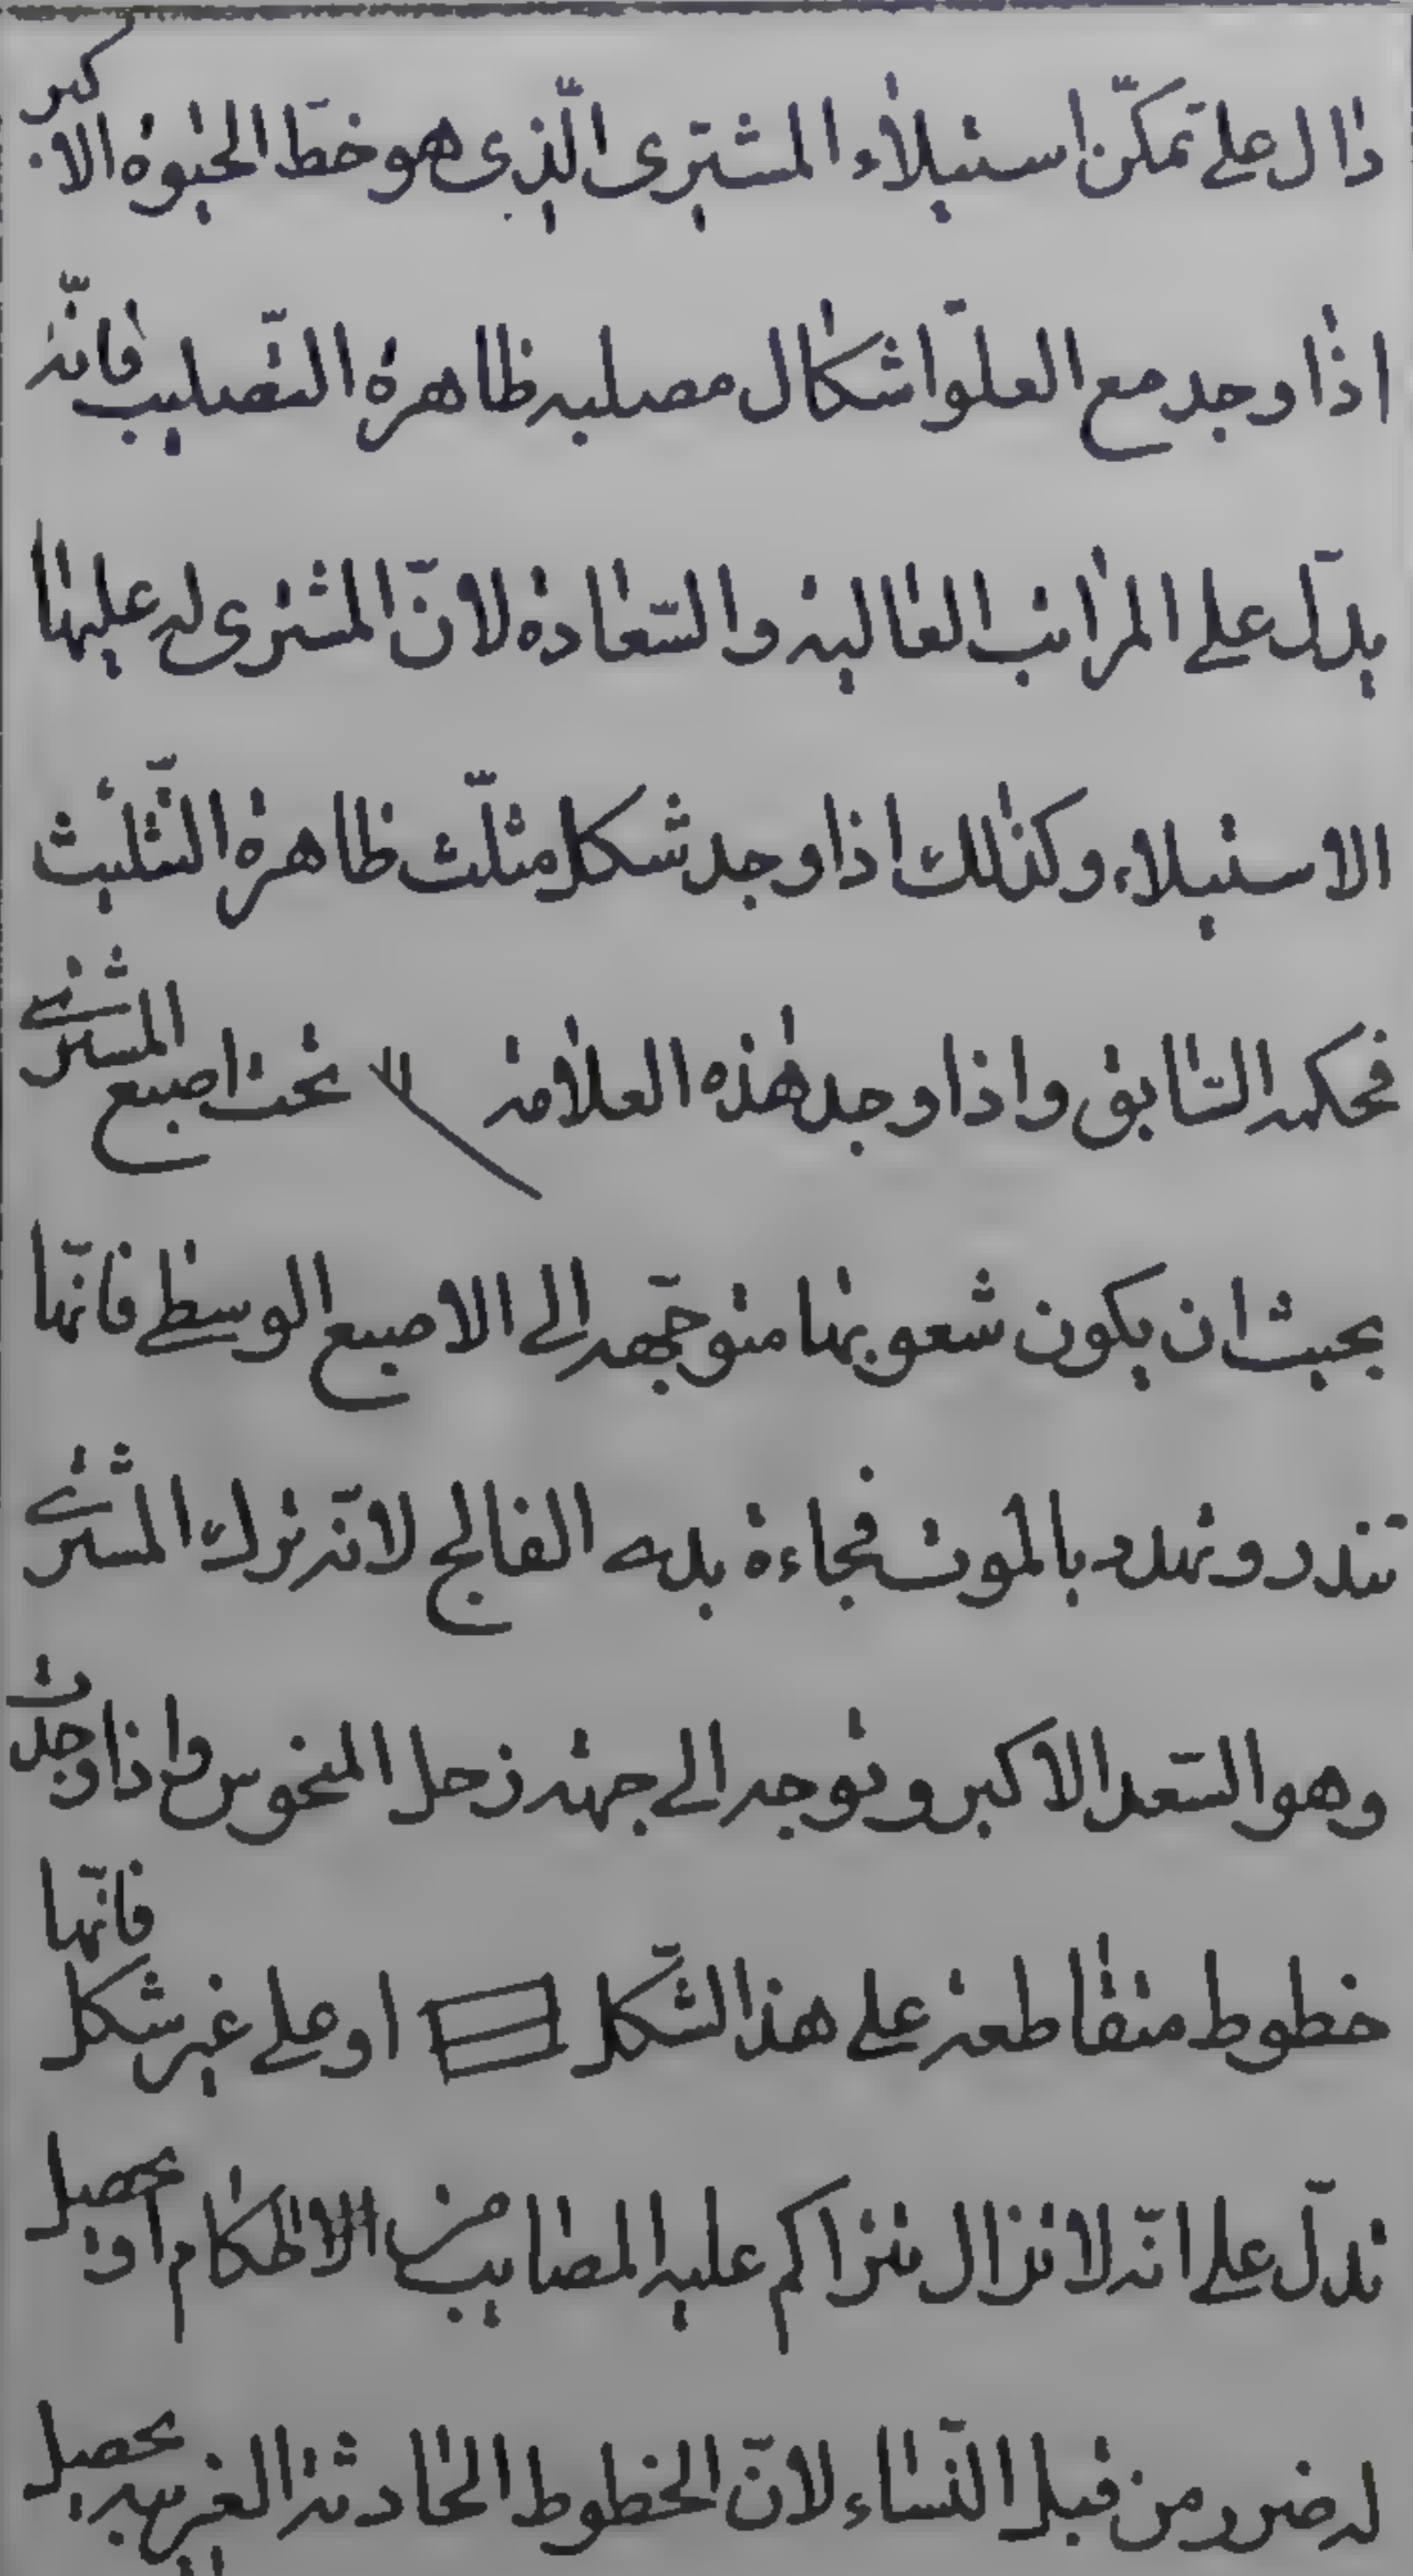 دال على تمكّن استيلاء المشترى الّذى هو خطّ الحيوة الاكبر
اذا وجد مع العلوّ اشكال مصلبه ظاهرة التّصليب فانّه
يدلّ على المراتب العالية والسّعادة لانّ المشترى له عليها
الاستيلاء وكذلك اذا وجد شكل مثلّث ظاهرة التّثليث
فحكمه السّابق واذا وجد هذه العلامة تحت اصبع المشترى
بحيث ان يكون شعوبها متوجّهه الى الاصبع الوسطى فانّها
تنذر وتهدد بالموت فجاءة بدء الفالج لانّه ترك المشترى
وهو السّعد الاكبر وتوجه الى جهة زحل المنحوس واذا وجدت
خطوط متقاطعة على هذا الشّكل او على غير شكل فانّها
تدلّ على انّه لا تزال تتراكم عليه المصايب من الحكام او يحصل
له ضرر من قبل النّساء لانّ الخطوط الحادثة الغريبه يحصل